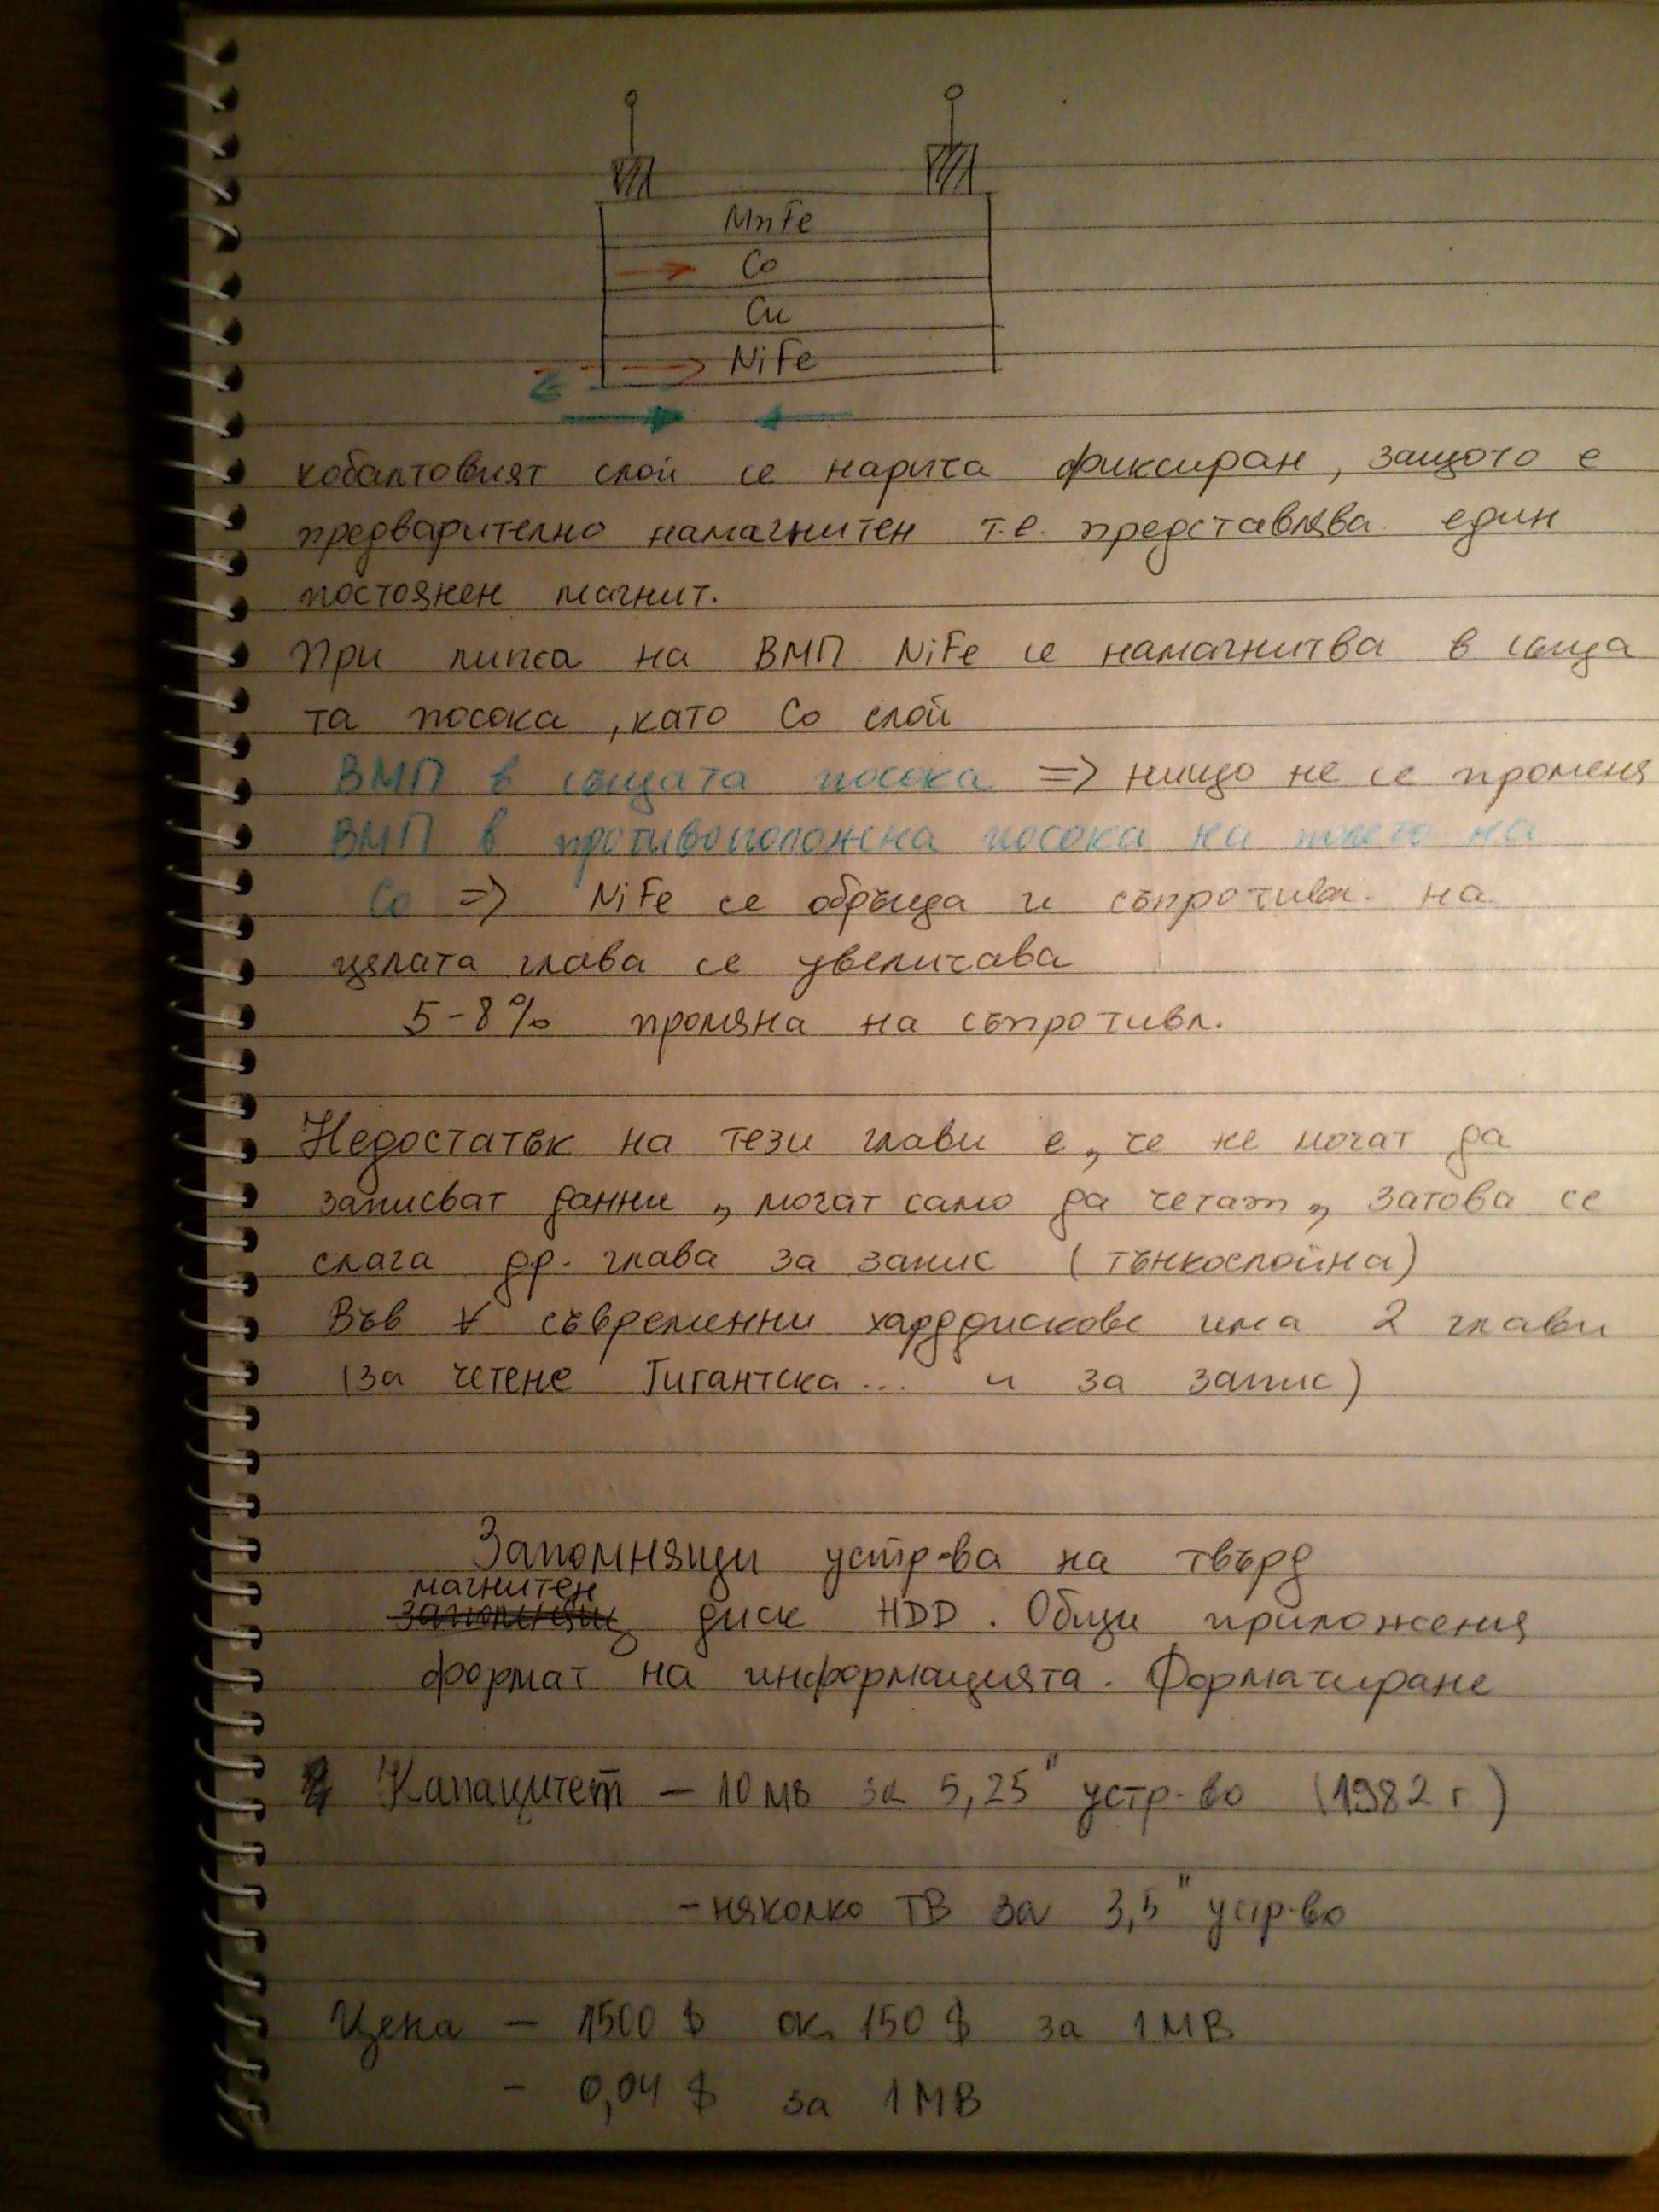 MnFe
Co
Cu
NiFe
кобалтовият слой се нарича фиксиран, защото е
предварително намагнитен т.е. представлява един
постоянен магнит.
При липса на ВМП NiFe се намагнитва в съща
та посока, като Co слой
ВМП в същата посока => нищо не се променя
ВМП в противоположна посока на полето на
Co => NiFe се обръща и съпротивл. на
цялата глава се увеличава
5-8% промяна на съпротивл.
Недостатък на тези глави е, че не могат да
записват данни, могат само да четат, затова се
слага др. глава за запис (тънкослойна)
Във съвременни харддискове има 2 глави
(за четене Гигантска... и за запис)
Запомнящи устр-ва на твърд
магнитен
диск HDD. Общи приложения
формат на информацията. Форматиране
Капацитет - 10 MB за 5,25" устр-во (1982 г)
- няколко TB за 3,5" устр-во
Цена - 1500 $ ок. 150 $ за 1 MB
- 0,04 $ за 1 MB